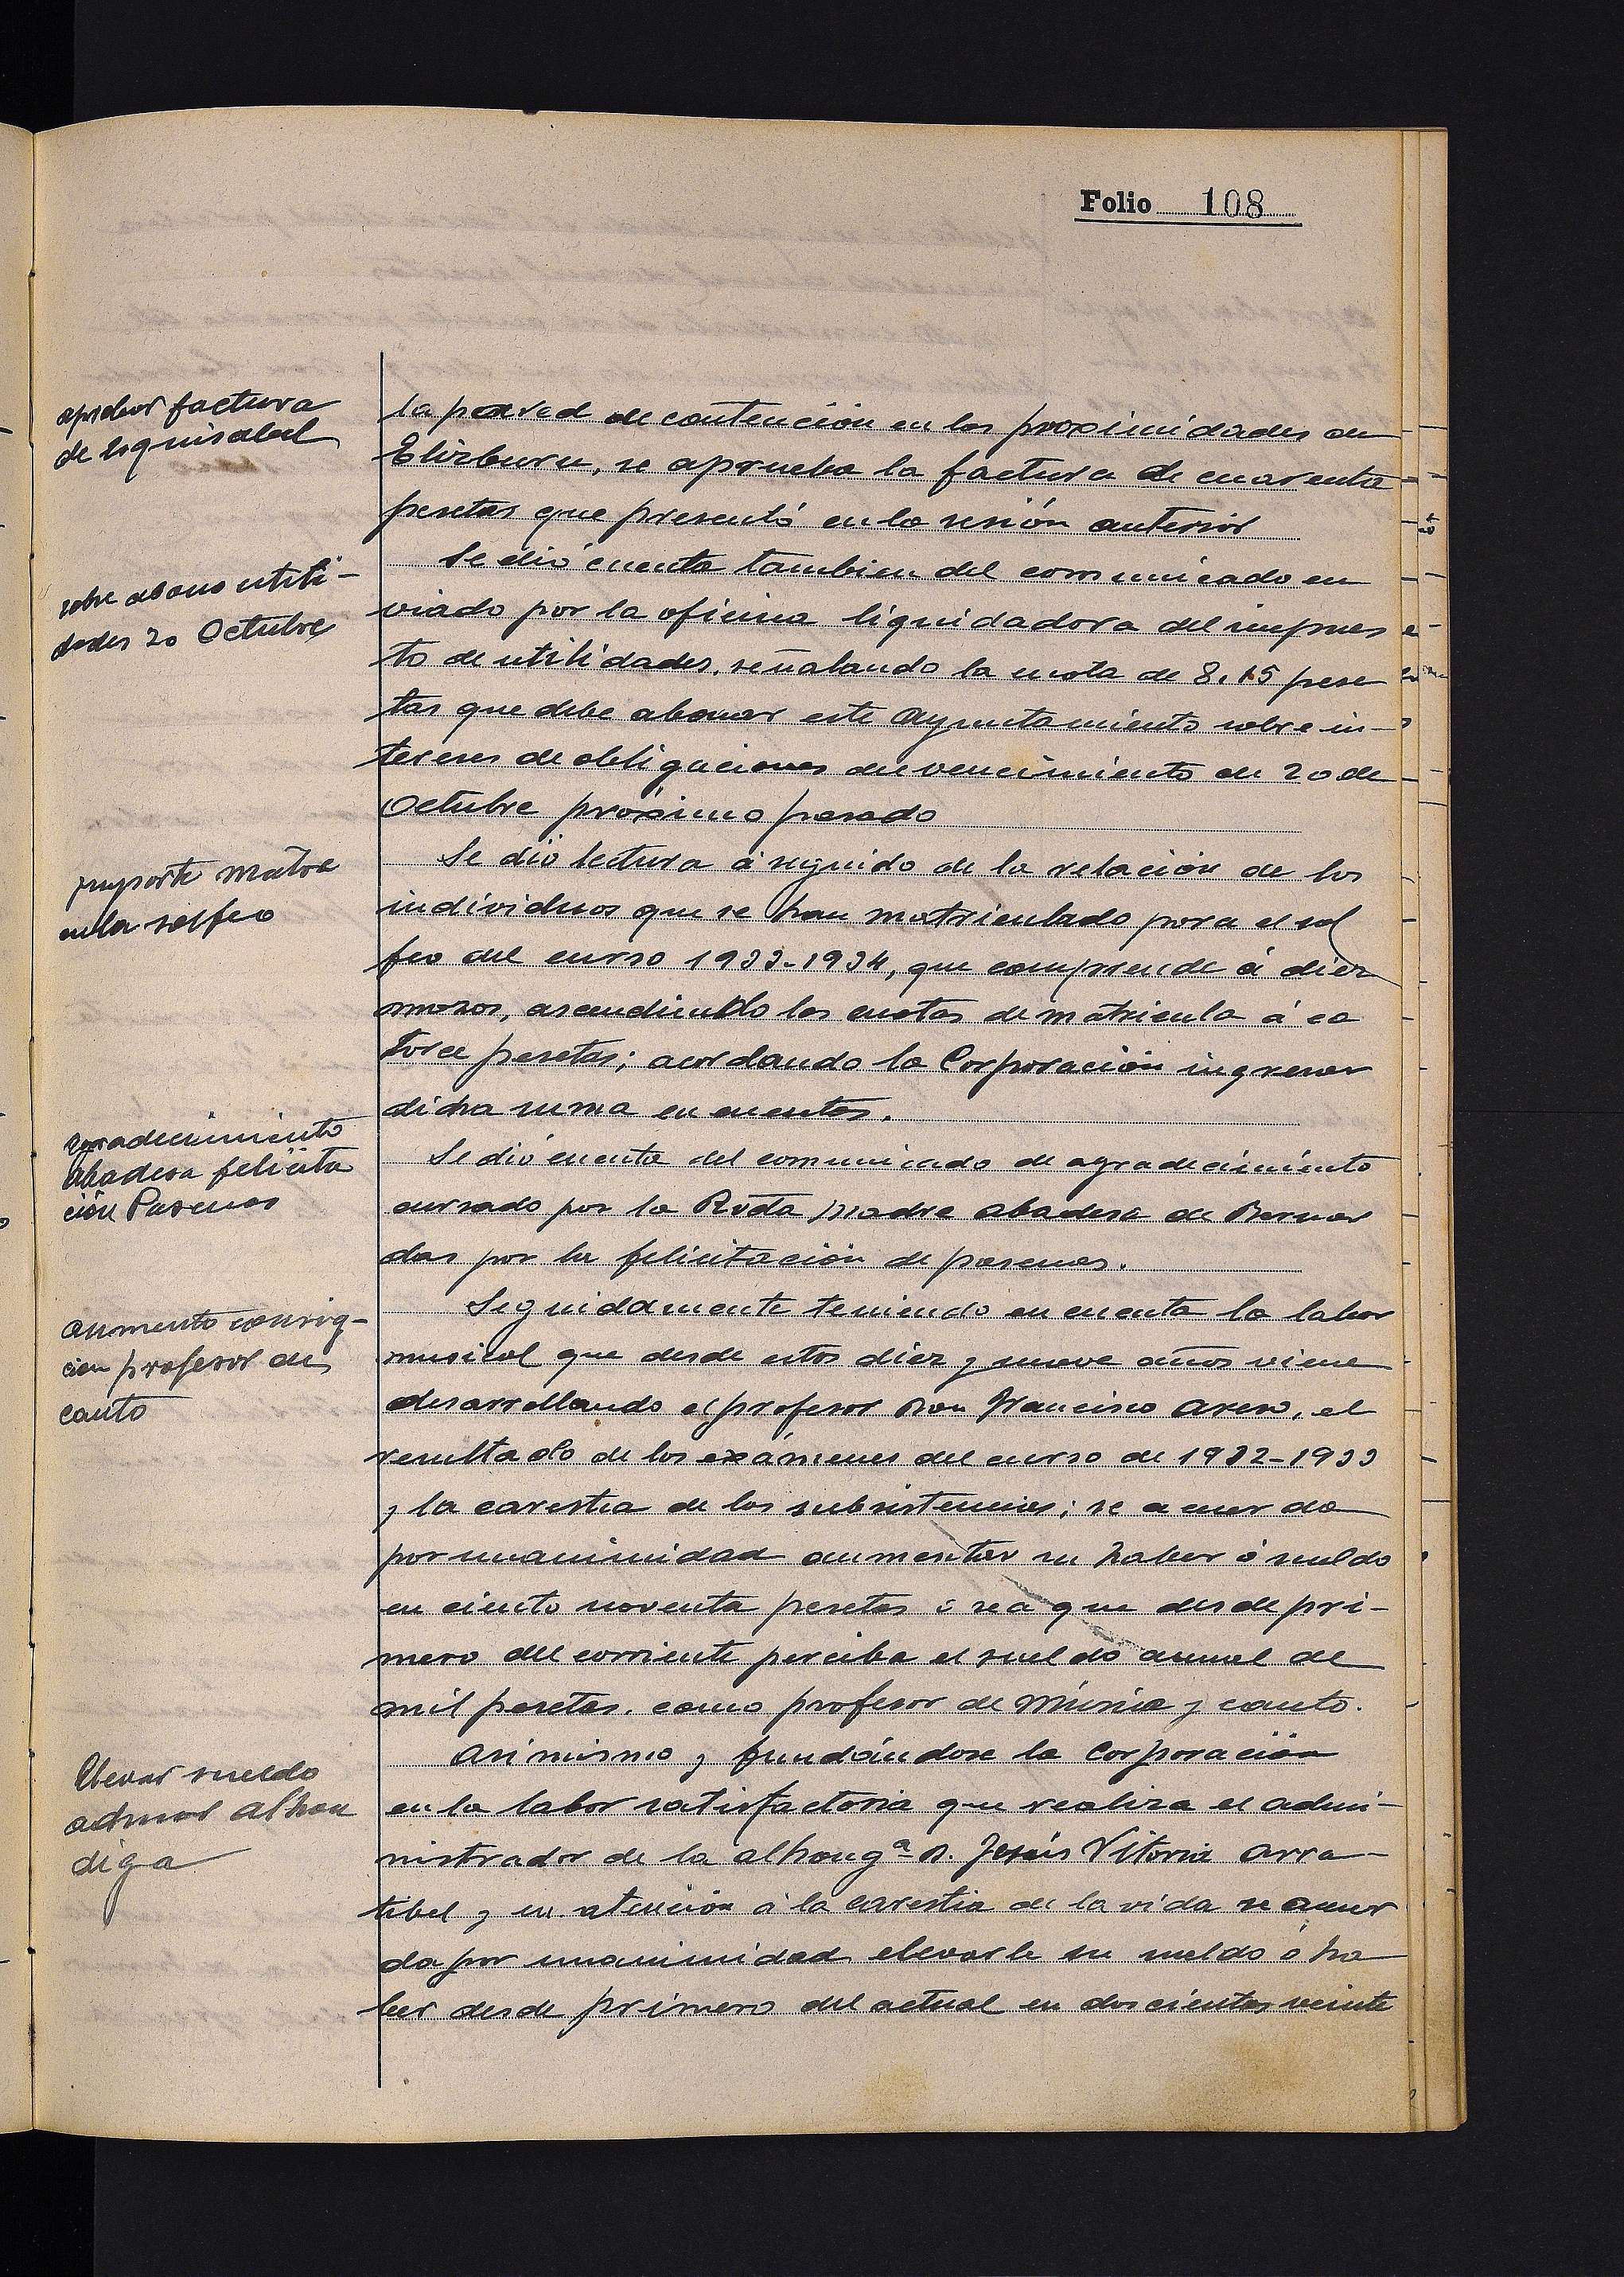 Folio 108
aprobar factura
de Esquisabel
la pared de contención en las proximidades de
Elizburu, se aprueba la factura de cuarenta
pesetas que presentó en la sesión anterior
sobre abono utili-
dades 20 Octubre
Se dió cuenta tambien del comunicado en
viado por la oficina liquidadora del impues
to de utilidades, señalando la cuota de 8,15 pese
tas que debe abonar este Ayuntamiento sobre in-
tereses de obligaciones de vencimiento de 20 de
Octubre próximo pasado
importe matra
cula solfeo
Se dió lectura á seguido de la relación de los
individuos que se han matriculado para el sol
feo del curso 1933-1934, que comprende á diez
mozos, ascendiendo las cuotas de matricula á ca
torce pesetas; acordando la Corporación ingresar
dicha suma en cuentas.
agradecimiento
Abadesa felicita
ción Pascuas
Se dió cuenta del comunicado de agradecimiento
cursado por la Rvda Madre abadesa de Bernar
das por la felicitación de pascuas.
aumento consig-
cion profesor de
canto
Seguidamente teniendo en cuenta la labor
musical que desde estos diez y nueve años viene
desarrollando el profesor Don Francisco Areso, el
resultado de los exámenes del curso de 1932-1933
y la carestia de las subsistencias; se acuerda
por unanimidad aumentar su haber ó sueldo
en ciento noventa pesetas ó sea que desde pri-
mero del corriente perciba el sueldo anual de
mil pesetas. como profesor de música y canto.
Elevar sueldo
admor alhon
diga
Asimismo y fundándose la Corporación
en la labor satisfactoria que realiza el admi-
nistrador de la alhongª D. Jesús Vitoria Arra-
tibel y en atención á la carestia de la vida se acuer
da por unanimidad elevarle su sueldo ó ha
ber desde primero del actual en doscientas veinte